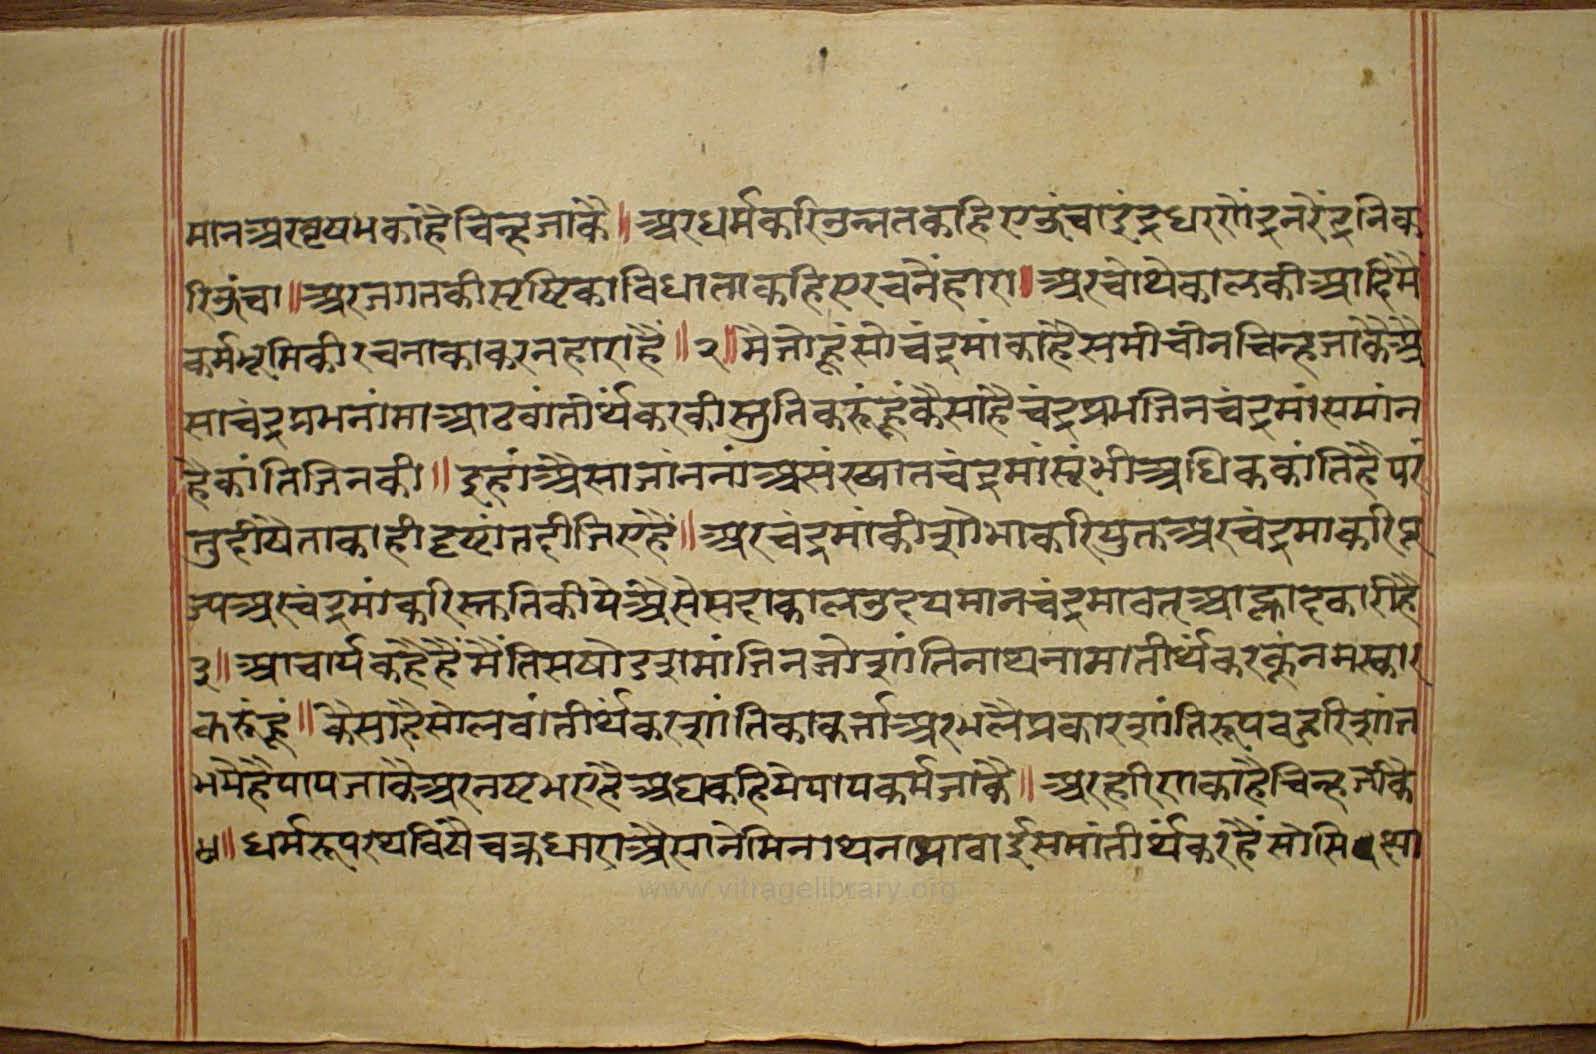 मानअरवृषभकाहैचिन्हजाकै॥अरधर्मकरिउन्नतकहिएऊंचाइंद्रधरणेंद्रनरेंद्रनिक
रिऊंचा॥अरजगतकीसृष्टिकाविधाताकहिएरचनैंहारा॥अरचोथेकालकीआदिमै
कर्मभूमिकीरचनाकाकरनहाराहै॥२॥मैजोहूंसोचंद्रमांकाहैसमीचीनचिन्हजाकैअै
साचंद्रप्रभनांमाआठवांतीर्थकरकीस्तुतिकरूंहूंकैसाहैचंद्रप्रभजिनचंद्रमांसमांन
हैकांतिजिनकी॥इहांअैसाजांननांअसंख्यातचंद्रमांसूंभीअधिककांतिहैपरं
तुदीयैताकाहीदृष्टांतदीजिएहै॥अरचंद्रमांकीशोभाकरियुक्तअरचंद्रमाकरिपू
ज्यअरचंद्रमांकरिस्तुतिकीयेअैसेसदाकालउदयमानचंद्रमावतआह्लादकारीहै
३॥आचार्यकहैहैंमैंतिसषोडशमांजिनजोशांतिनाथनामातीर्थकरकूंनमस्कार
करूंहूं॥कैसाहैसोलवांतीर्थकरशांतिकाकर्त्ताअरभलैप्रकारशांतिरूपबहुरिशांत
भयेहैपापजाकैअरनष्टभएहैअघकहियेपापकर्मजाकै॥अरहरिणकाहैचिन्हजाकै
४॥धर्मरूपरथविषैचक्रधाराअैसानेमिनाथनामाबाईसमांतीर्थकरहैंसोसि
www.vitragelibrary.org